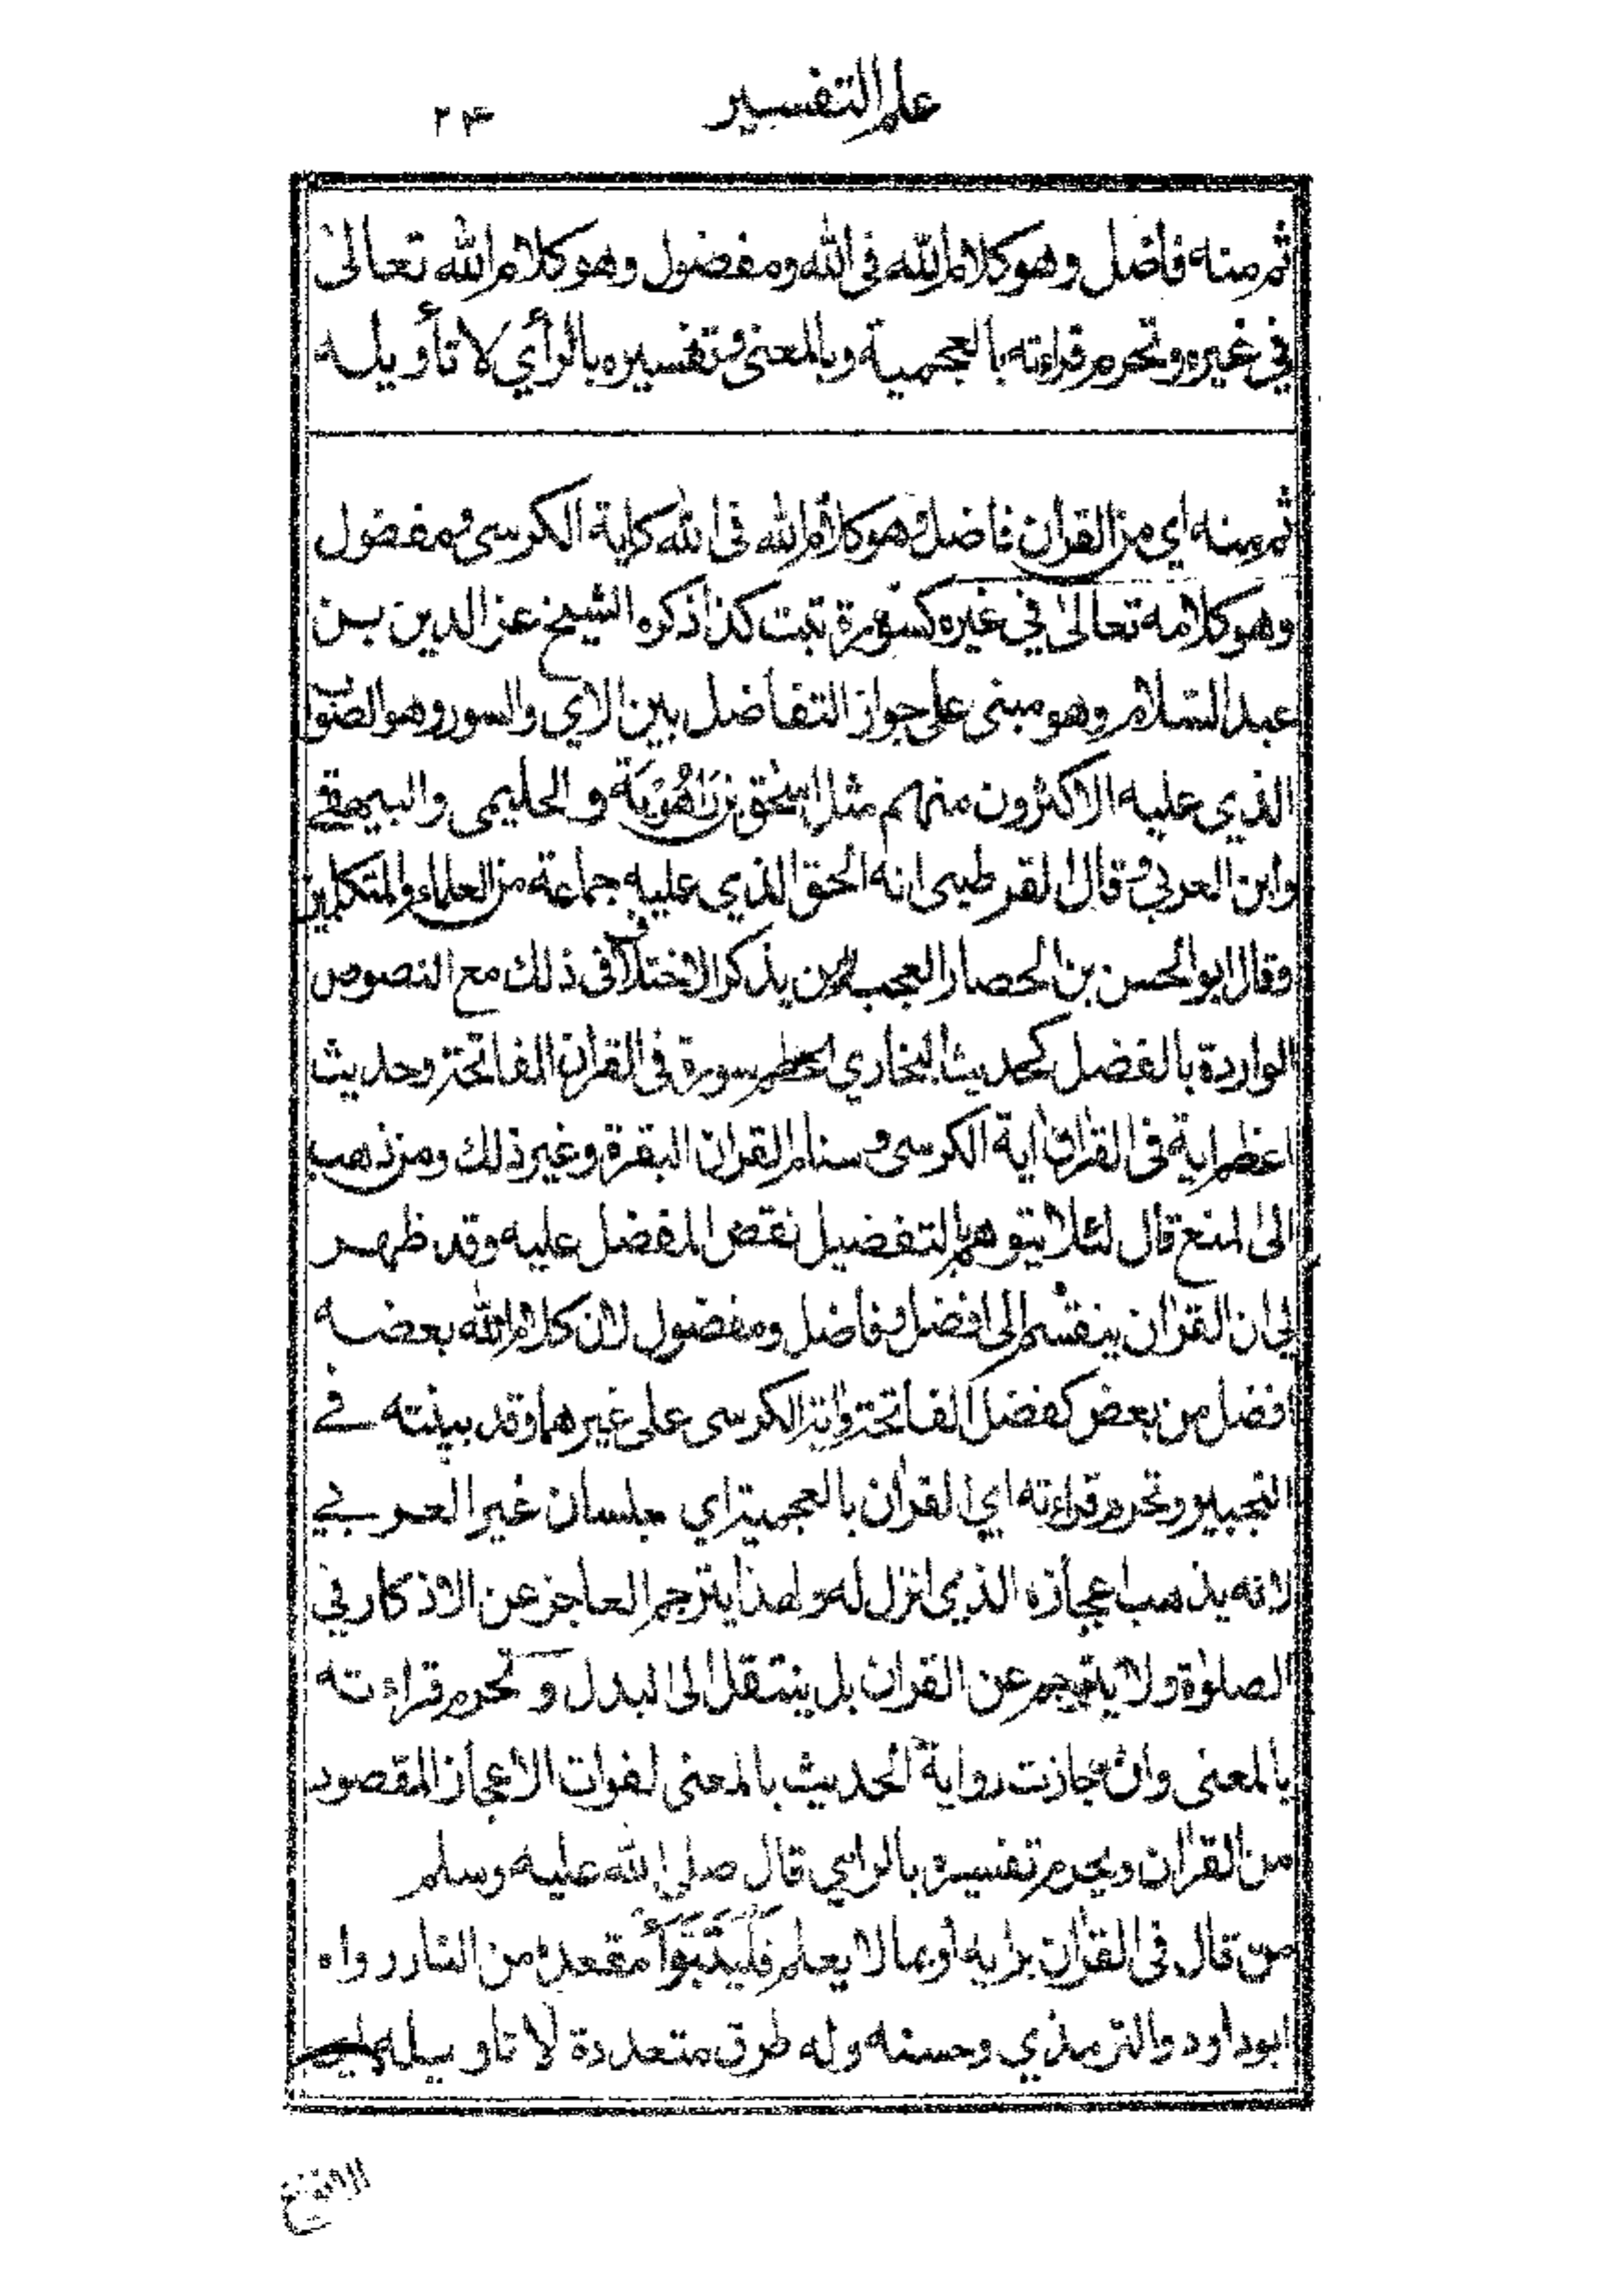 علم التفسير ٢٤
ثم منه فاضل وهو كلام الله فى الله ومفضول وهو كلام الله تعالى
في غيره وتحرم قراءته بالعجمية وبالمعنى وتفسيره بالرأي لا تأويله
ثم منه اي من القران فاضل وهو كلام الله فى الله كاية الكرسى ومفضول
وهو كلامه تعالى في غيره كسورة تبت كذا ذكره الشيخ عز الدين بن
عبد السلام وهو مبنى على جواز التفاضل بين الاي والسور وهو الصواب
الذي عليه الاكثرون منهم مثل اسحق بن رَاهُوَيَة والحليمى والبيهقے
وابن العربي وقال القرطبى انه الحق الذي عليه جماعة من العلماء والمتكلمين
وقال ابو الحسن بن الحصار العجب ممن يذكر الاختلاف فى ذلك مع النصوص
الواردة بالفضل كحديث البخاري اعظم سورة فى القرأن الفاتحة وحديث
اعظم اية فى القرأن أية الكرسى وسنام القران البقرة وغير ذلك ومن ذهب
الى المنع قال لئلا يتوهم بالتفضيل نقص المفضل عليه وقد ظهر
لي ان القرأن ينقسم الى افضل وفاضل ومفضول لان كلام الله بعضه
افضل من بعض كفضل الفاتحة واية الكرسى على غيرهما وقد بينته في
التحبير وتحرم قراءته اي القرأن بالعجمية اي بلسان غير العربي
لانه يذهب اعجازه الذي انزل له ولهذا يترجم العاجز عن الاذكار في
الصلوة ولا يترجم عن القرأن بل ينتقل الى البدل وتحرم قراءته
بالمعنى وان جازت رواية الحديث بالمعنى لفوات الاعجاز المقصود
من القرأن ويحرم تفسيره بالراي قال صلى الله عليه وسلم
من قال فى القرأن برايه أو بما لا يعلم فَلْيَتَبَوَّأْ مقعده من النار رواه
ابو داود والترمذي وحسنه وله طرق متعددة لا تاويله اي